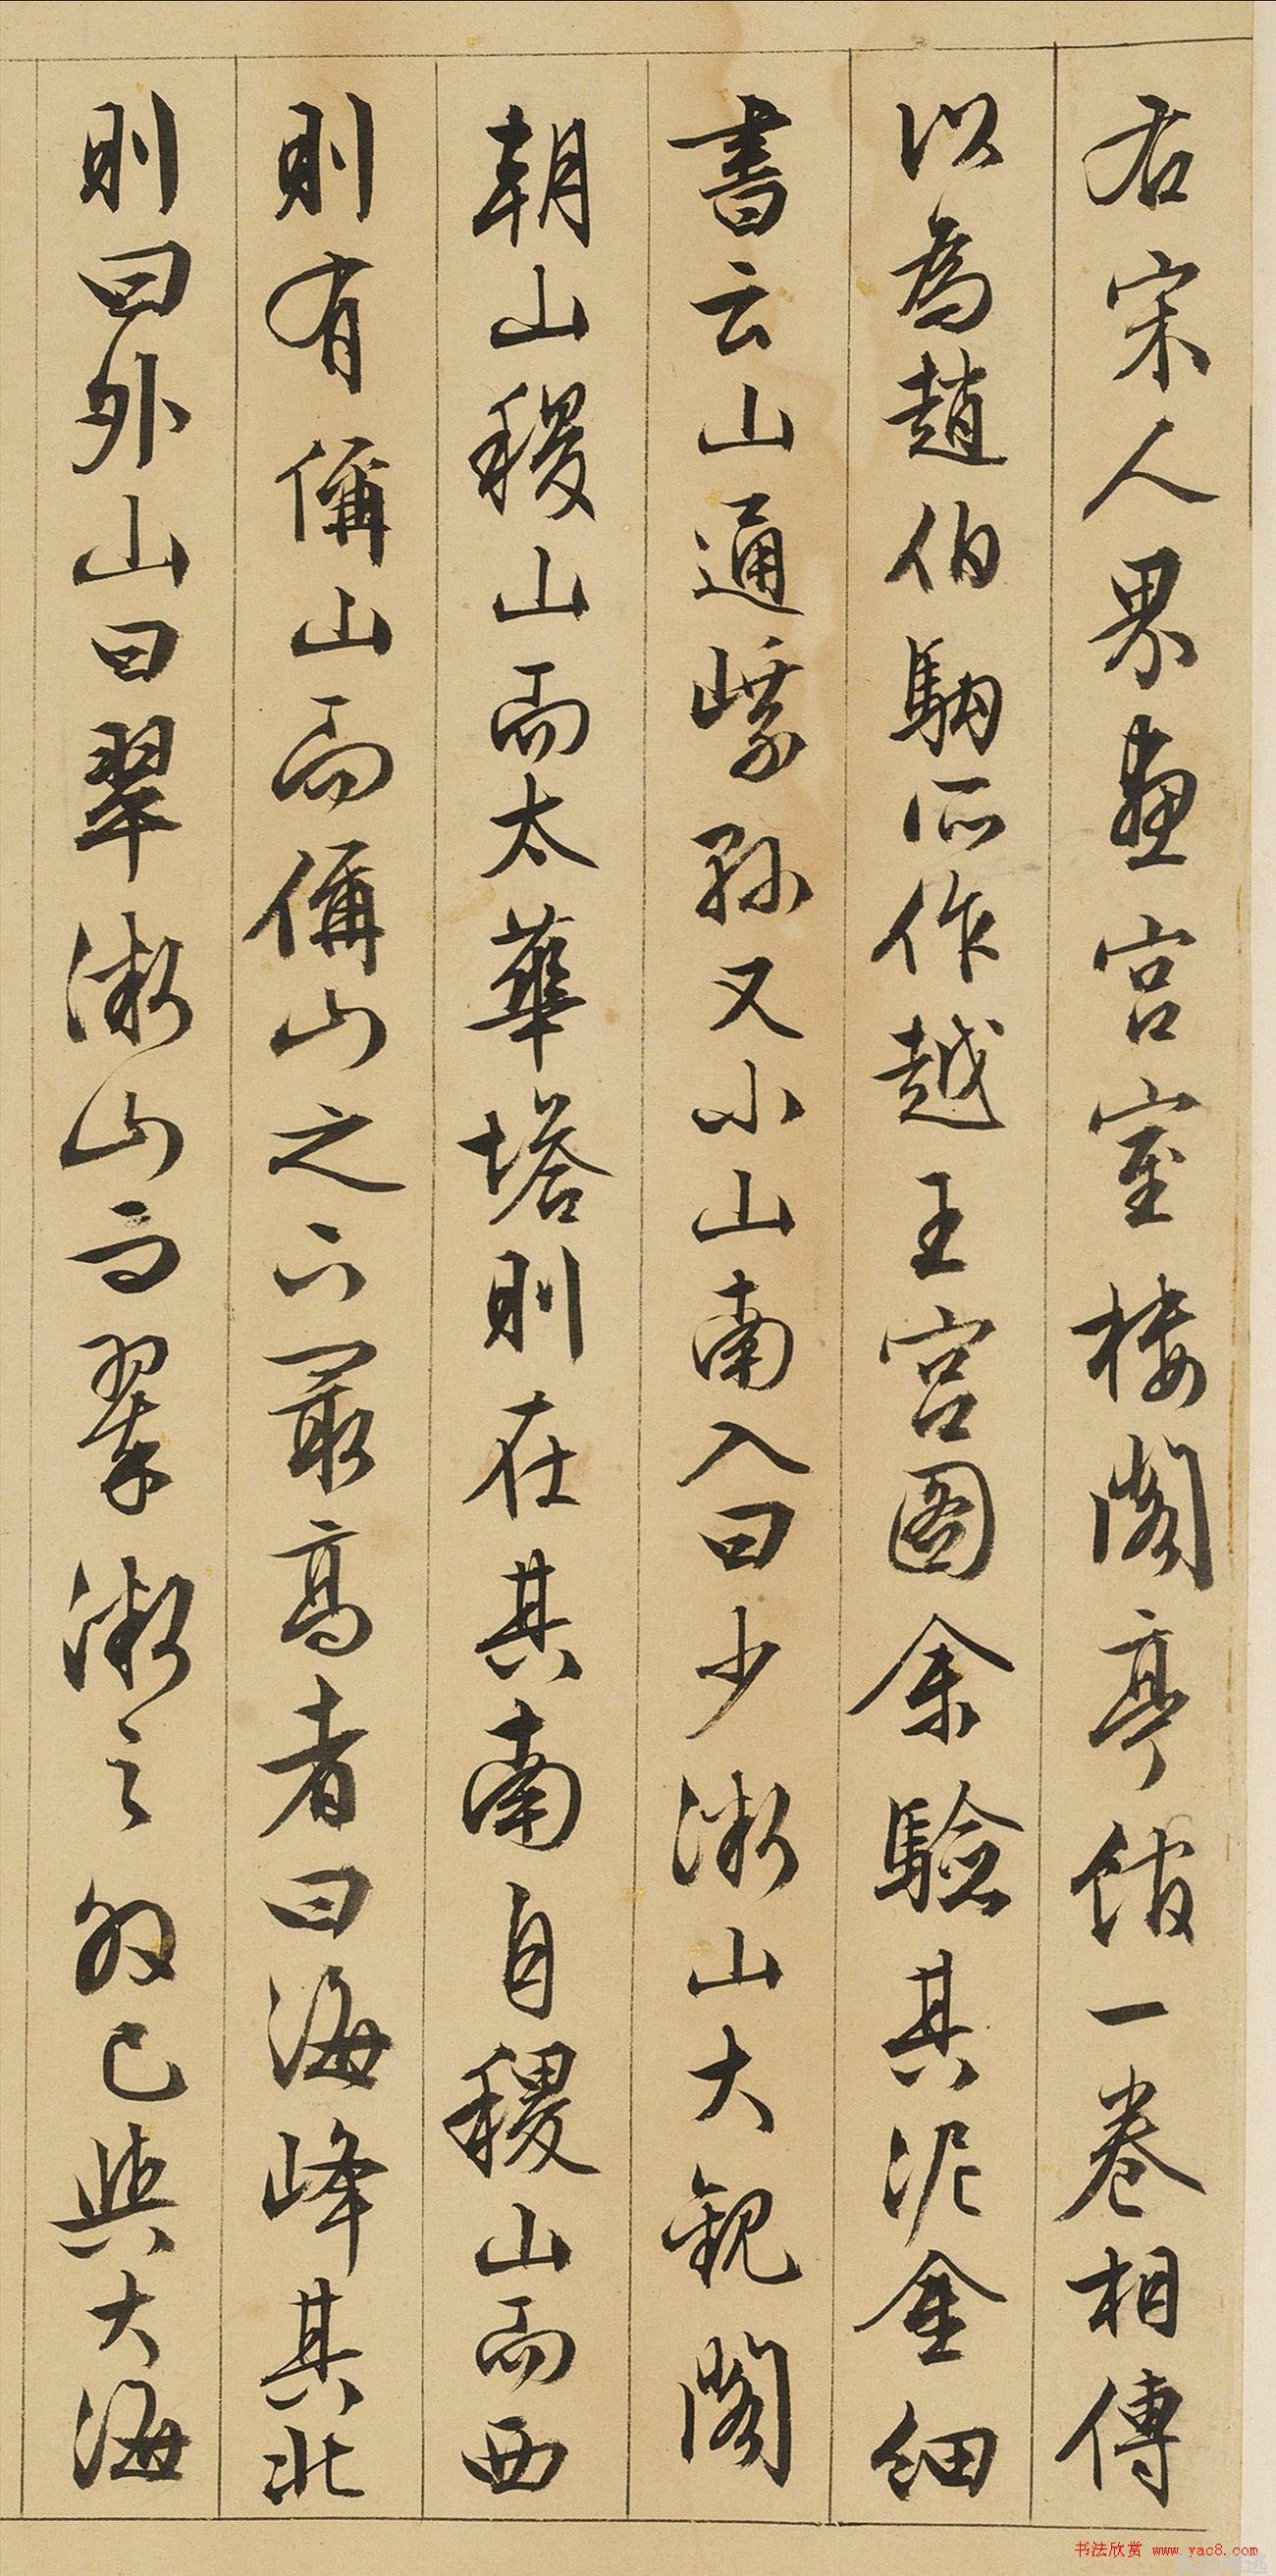 右宋人界畫宮室樓閣亭館一卷相傳
以為趙伯駒所作越王宮圖余驗其泥金細
書云山通峨孫又小山南入曰少微山大觀閣
朝山稷山而太華塔則在其南自稷山而西
則有偁山而偁山之下最高者曰海峰其北
則曰外山曰翠微山而翠微之外已與大海
书法欣赏 www.yac8.com